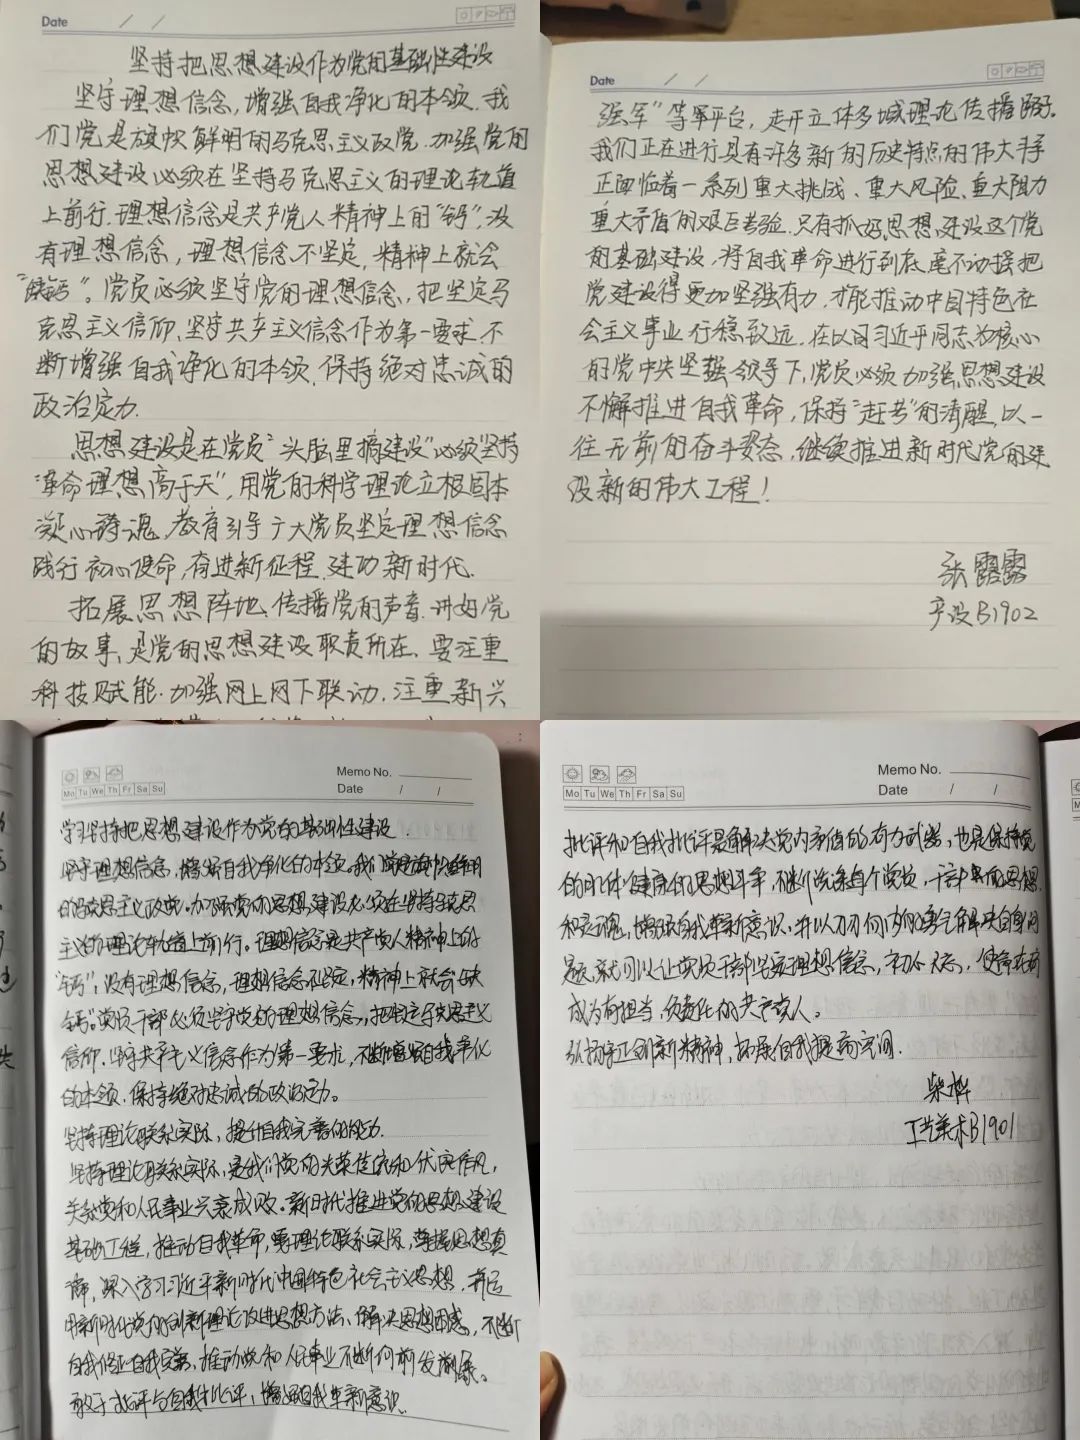 Date / /
坚持把思想建设作为党的基础性建设
坚守理想信念,增强自我净化的本领.我
们党是旗帜鲜明的马克思主义政党.加强党的
思想建设必须在坚持马克思主义的理论轨道
上前行.理想信念是共产党人精神上的“钙”,没
有理想信念,理想信念不坚定,精神上就会
“缺钙”。党员必须坚守党的理想信念,把坚定马
克思主义信仰、坚守共产主义信念作为第一要求.不
断增强自我净化的本领.保持绝对忠诚的
政治定力.
思想建设是在党员“头脑里搞建设”必须“坚持
革命理想高于天”,用党的科学理论立根固本
凝心铸魂,教育引导广大党员坚定理想信念
践行初心使命,奋进新征程.建功新时代.
拓展思想阵地.传播党的声音.讲好党
的故事,是党的思想建设职责所在.要注重
科技赋能.加强网上网下联动.注重新兴
Date / /
强军”等军平台,走开立体多域理论传播路子.
我们正在进行具有许多新的历史特点的伟大斗争
正面临着一系列重大挑战、重大风险、重大阻力
重大矛盾的艰巨考验.只有抓好思想建设这个党
的基础建设,将自我革命进行到底,毫不动摇把
党建设得更加坚强有力.才能推动中国特色社
会主义事业行稳致远.在以习近平同志为核心
的党中央坚强领导下,党员必须加强思想建设
不懈推进自我革命,保持“赶考”的清醒,以一
往无前的奋斗姿态,继续推进新时代党的建
设新的伟大工程!
张露露
产设B1902
Memo No.
Mo Tu We Th Fr Sa Su Date / /
学习坚持把思想建设作为党的基础性建设
坚守理想信念,增强自我净化的本领.我们党是旗帜鲜明
的马克思主义政党.加强党的思想建设必须在坚持马克思
主义的理论轨道上前行.理想信念是共产党人精神上的
“钙”,没有理想信念,理想信念不坚定,精神上就会“缺
钙”。党员干部必须坚守党的理想信念,把坚定马克思主义
信仰、坚守共产主义信念作为第一要求,不断增强自我净化
的本领.保持绝对忠诚的政治定力。
坚持理论联系实际,提升自我完善的能力.
坚持理论联系实际,是我们党的光荣传统和优良作风,
关系党和人民事业兴衰成败。新时代推进党的思想建设
基础工程,推动自我革命,要理论联系实际,掌握思想真
谛,深入学习习近平新时代中国特色社会主义思想,并运
用新时代党的创新理论改进思想方法、解决思想困惑,不断
自我修正自我完善,推动党和人民事业不断向前发展。
敢于批评与自我批评,增强自我革新意识.
Memo No.
Mo Tu We Th Fr Sa Su Date / /
批评和自我批评是解决党内矛盾的有力武器,也是保持党
的肌体健康的思想斗争,不断洗涤每个党员、干部的思想
和灵魂,增强自我革新意识.并以刀刃向内的勇气解决自身问
题,就可以让党员干部坚定理想信念,初心不忘,使命在肩
成为有担当,负责任的共产党人。
弘扬守正创新精神,拓展自我提高空间.
柴桦
工艺美术B1901